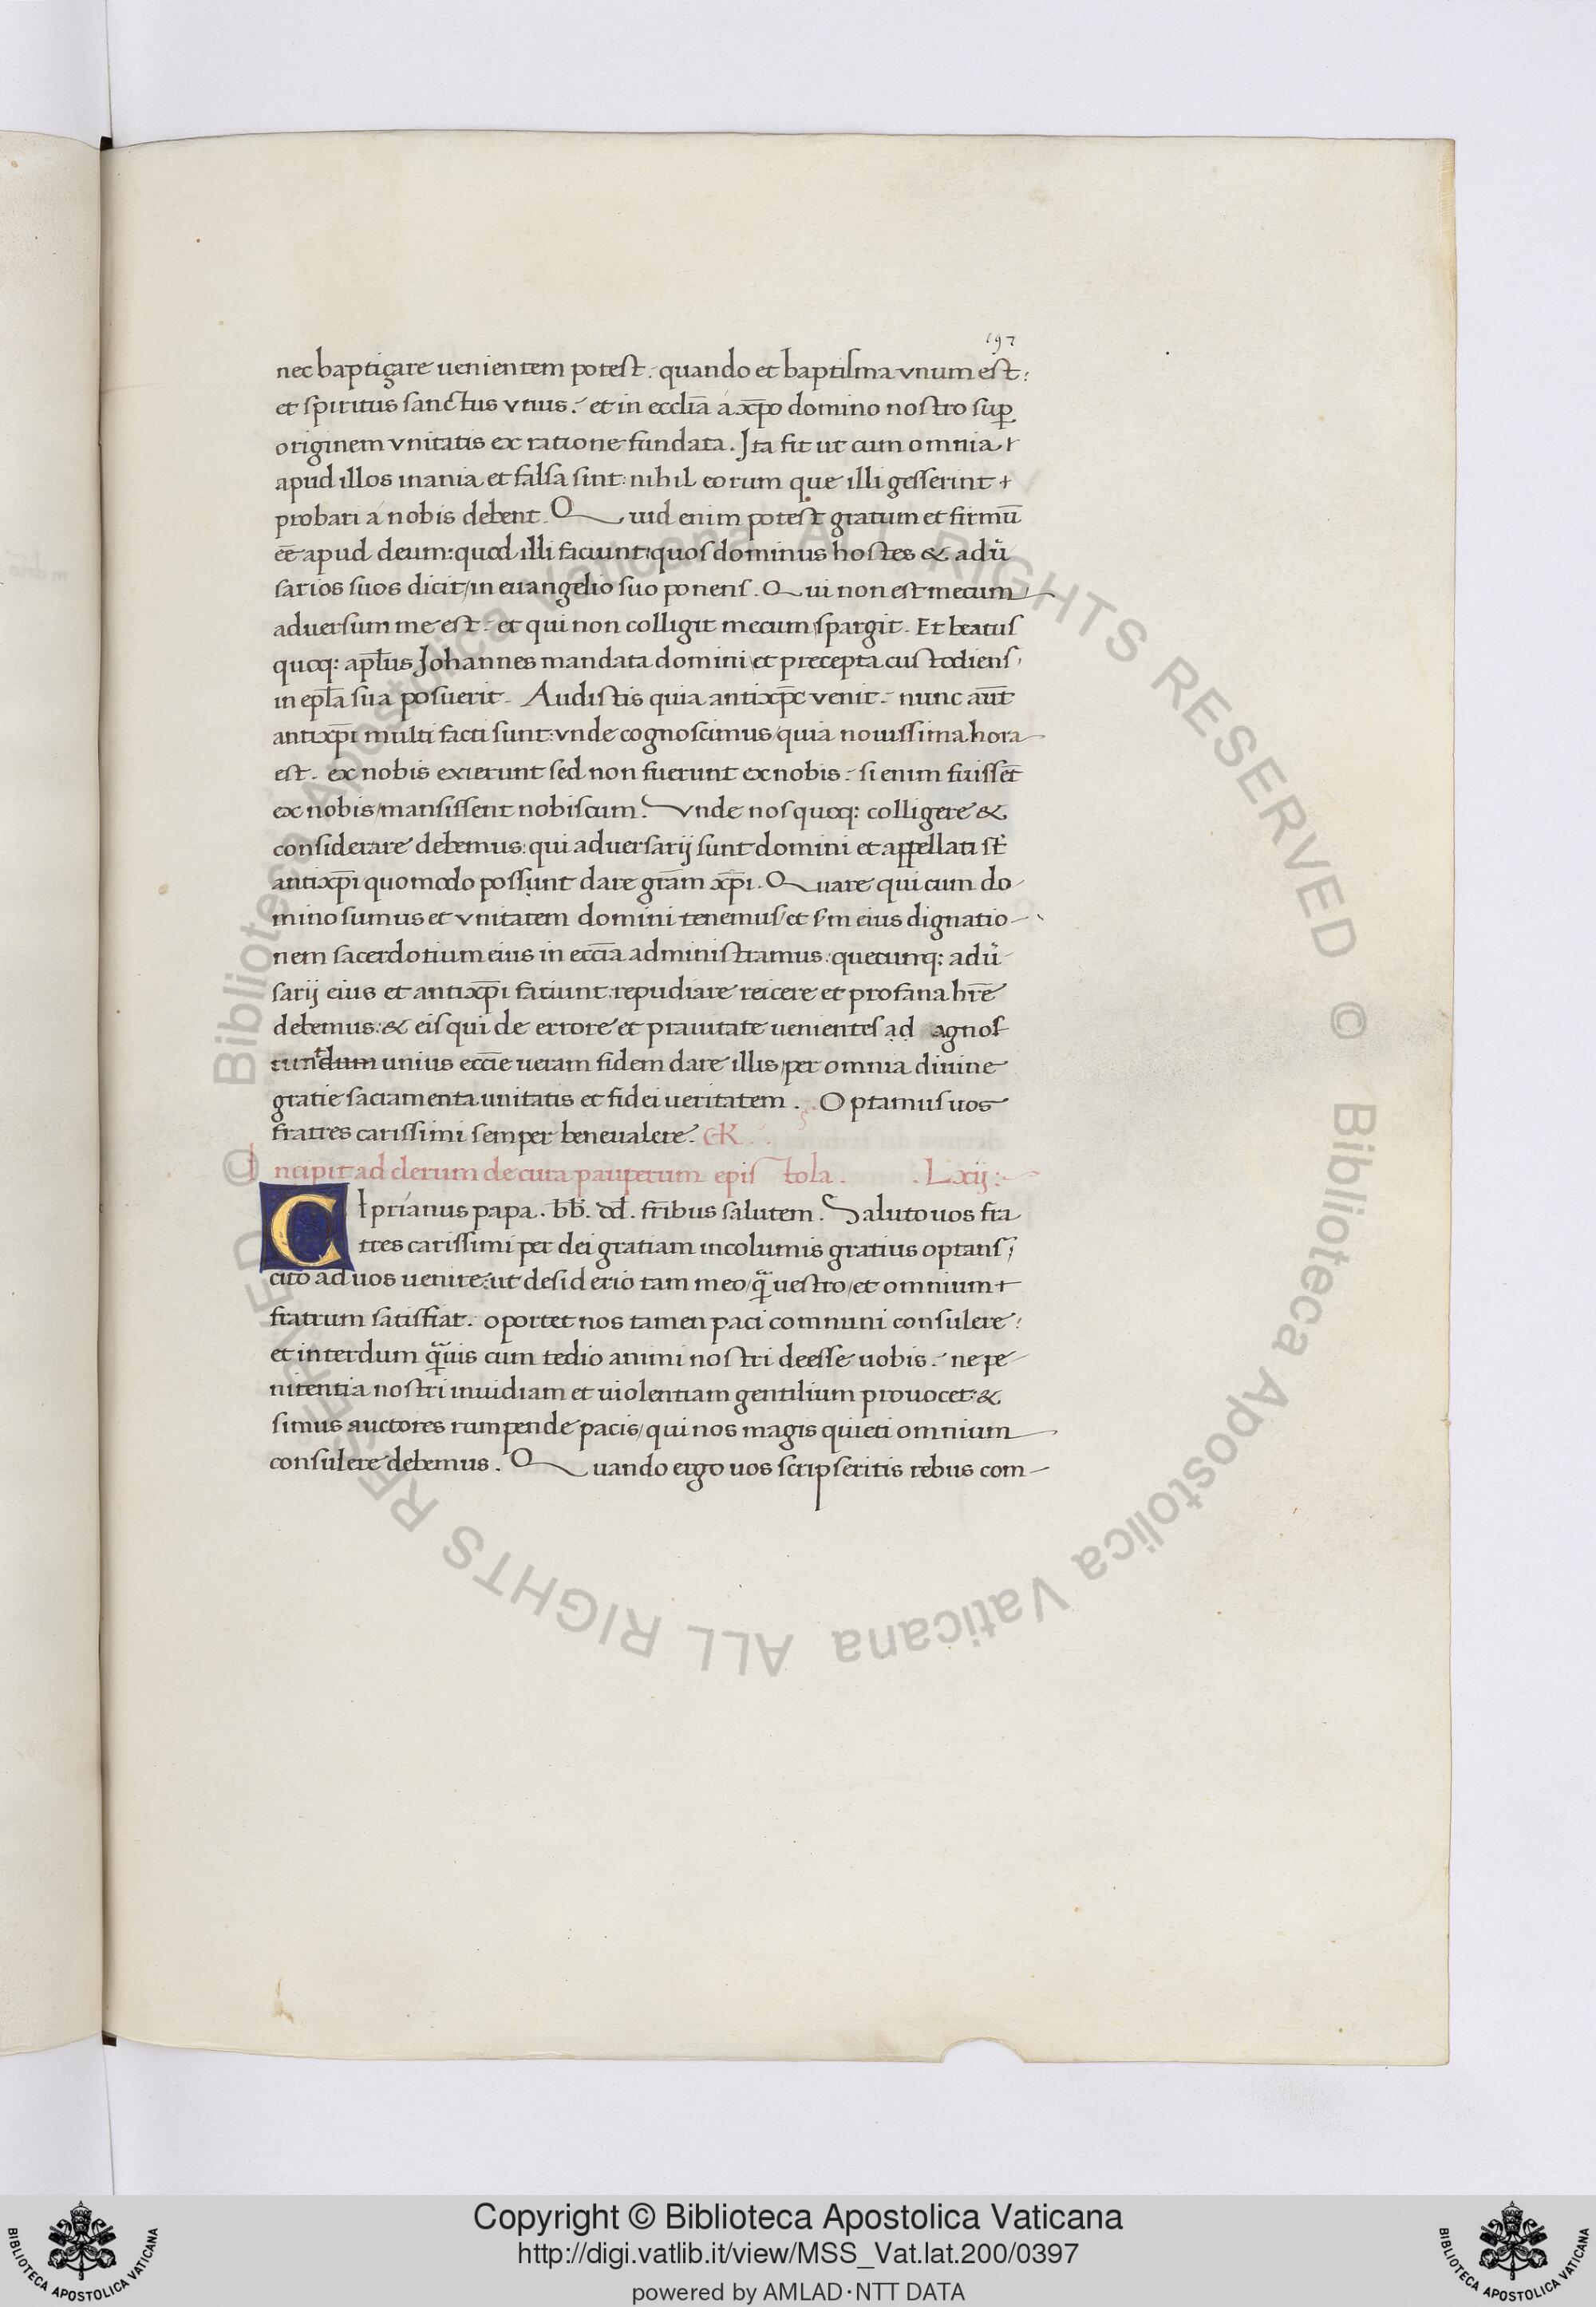 197
nec baptiçare uenientem potest. quando et baptisma vnum est:
et spiritus sanctus vnus. et in ecclīa á xp̄o domino nostro sup̱
originem vnitatis ex ratione fundata. Ita fit ut cum omnia
apud illos inania et falsa sint: nihil eorum que illi gesserint
probari á nobis debent. Quid enim potest gratum et firmū
eē apud deum: quod illi faciunt: quos dominus hostes & adu̾
sarios suos dicit/ in euangelio suo ponens. Qui non est mecum/
aduersum me est. et qui non colligit mecum/ spargit. Et beatus
quoq: apl̄us Johannes mandata domini et precepta custodiens/
in epl̄a sua posuerit. Audistis quia antixp̄c venit. nunc aūt
antixp̄i multi facti sunt: vnde cognoscimus/ quia nouissima hora
est. ex nobis exierunt sed non fuerunt ex nobis. si enim fuissēt
ex nobis/ mansissent nobiscum. Vnde nos quoq: colligere &
considerare debemus: qui aduersarij sunt domini et appellati st̄
antixp̄i quomodo possunt dare grām xp̄i. Quare qui cum do
mino sumus et vnitatem domini tenemus/ et s̾m eius dignatio-
nem sacerdotium eius in eccīa administramus: quecunq: adu̾
sarij eius et antixp̄i faciunt: repudiare reicere et profana hr̄e
debemus: & eis qui de errore et prauitate uenientes ad agnos
cundum unius eccīe ueram fidem dare illis/ per omnia diuine
gratie sacramenta unitatis et fidei ueritatem. Optamus uos
fratres carissimi semper bene ualere.
Incipit ad clerum de cura pauperum epistola. Lxij:
CIprianus papa. b̄b̄. d̄d̄. fr̄ibus salutem. Saluto uos fra
tres carissimi per dei gratiam incolumis gratius optans/
cito ad uos uenire: ut desiderio tam meo/ q̄ uestro/ et omnium
fratrum satisfiat. oportet nos tamen paci comnuni consulere:
et interdum q̄uis cum tedio animi nostri deesse uobis. ne pe
nitentia nostri inuidiam et uiolentiam gentilium prouocet: &
simus auctores rumpende pacis/ qui nos magis quieti omnium
consulere debemus. Quando ergo uos scripseritis rebus com-
© Biblioteca Apostolica Vaticana ALL RIGHTS RESERVED © Biblioteca Apostolica Vaticana ALL RIGHTS RESERVED
Copyright © Biblioteca Apostolica Vaticana
http://digi.vatlib.it/view/MSS_Vat.lat.200/0397
powered by AMLAD·NTT DATA
BIBLIOTECA APOSTOLICA VATICANA
BIBLIOTECA APOSTOLICA VATICANA